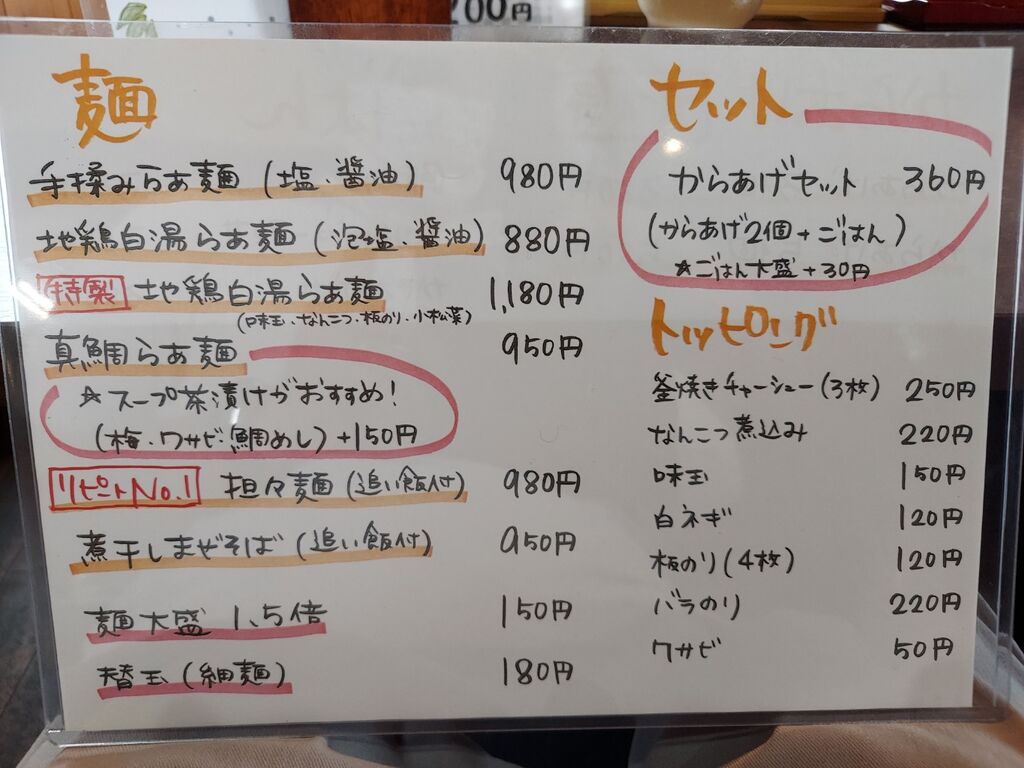 200円
麺
手揉みらぁ麺 (塩、醤油) 980円
地鶏白湯らぁ麺 (泡塩、醤油) 880円
特製 地鶏白湯らぁ麺 1,180円
(味玉、なんこつ、板のり、小松菜)
真鯛らぁ麺 950円
☆スープ茶漬けがおすすめ!
(梅・ワサビ・鯛めし) +150円
リピートNo.1 担々麺 (追い飯付) 980円
煮干しまぜそば (追い飯付) 950円
麺大盛 1.5倍 150円
替玉 (細麺) 180円
セット
からあげセット 360円
(からあげ2個+ごはん)
☆ごはん大盛+30円
トッピング
釜焼きチャーシュー(3枚) 250円
なんこつ煮込み 220円
味玉 150円
白ネギ 120円
板のり(4枚) 120円
バラのり 220円
ワサビ 50円